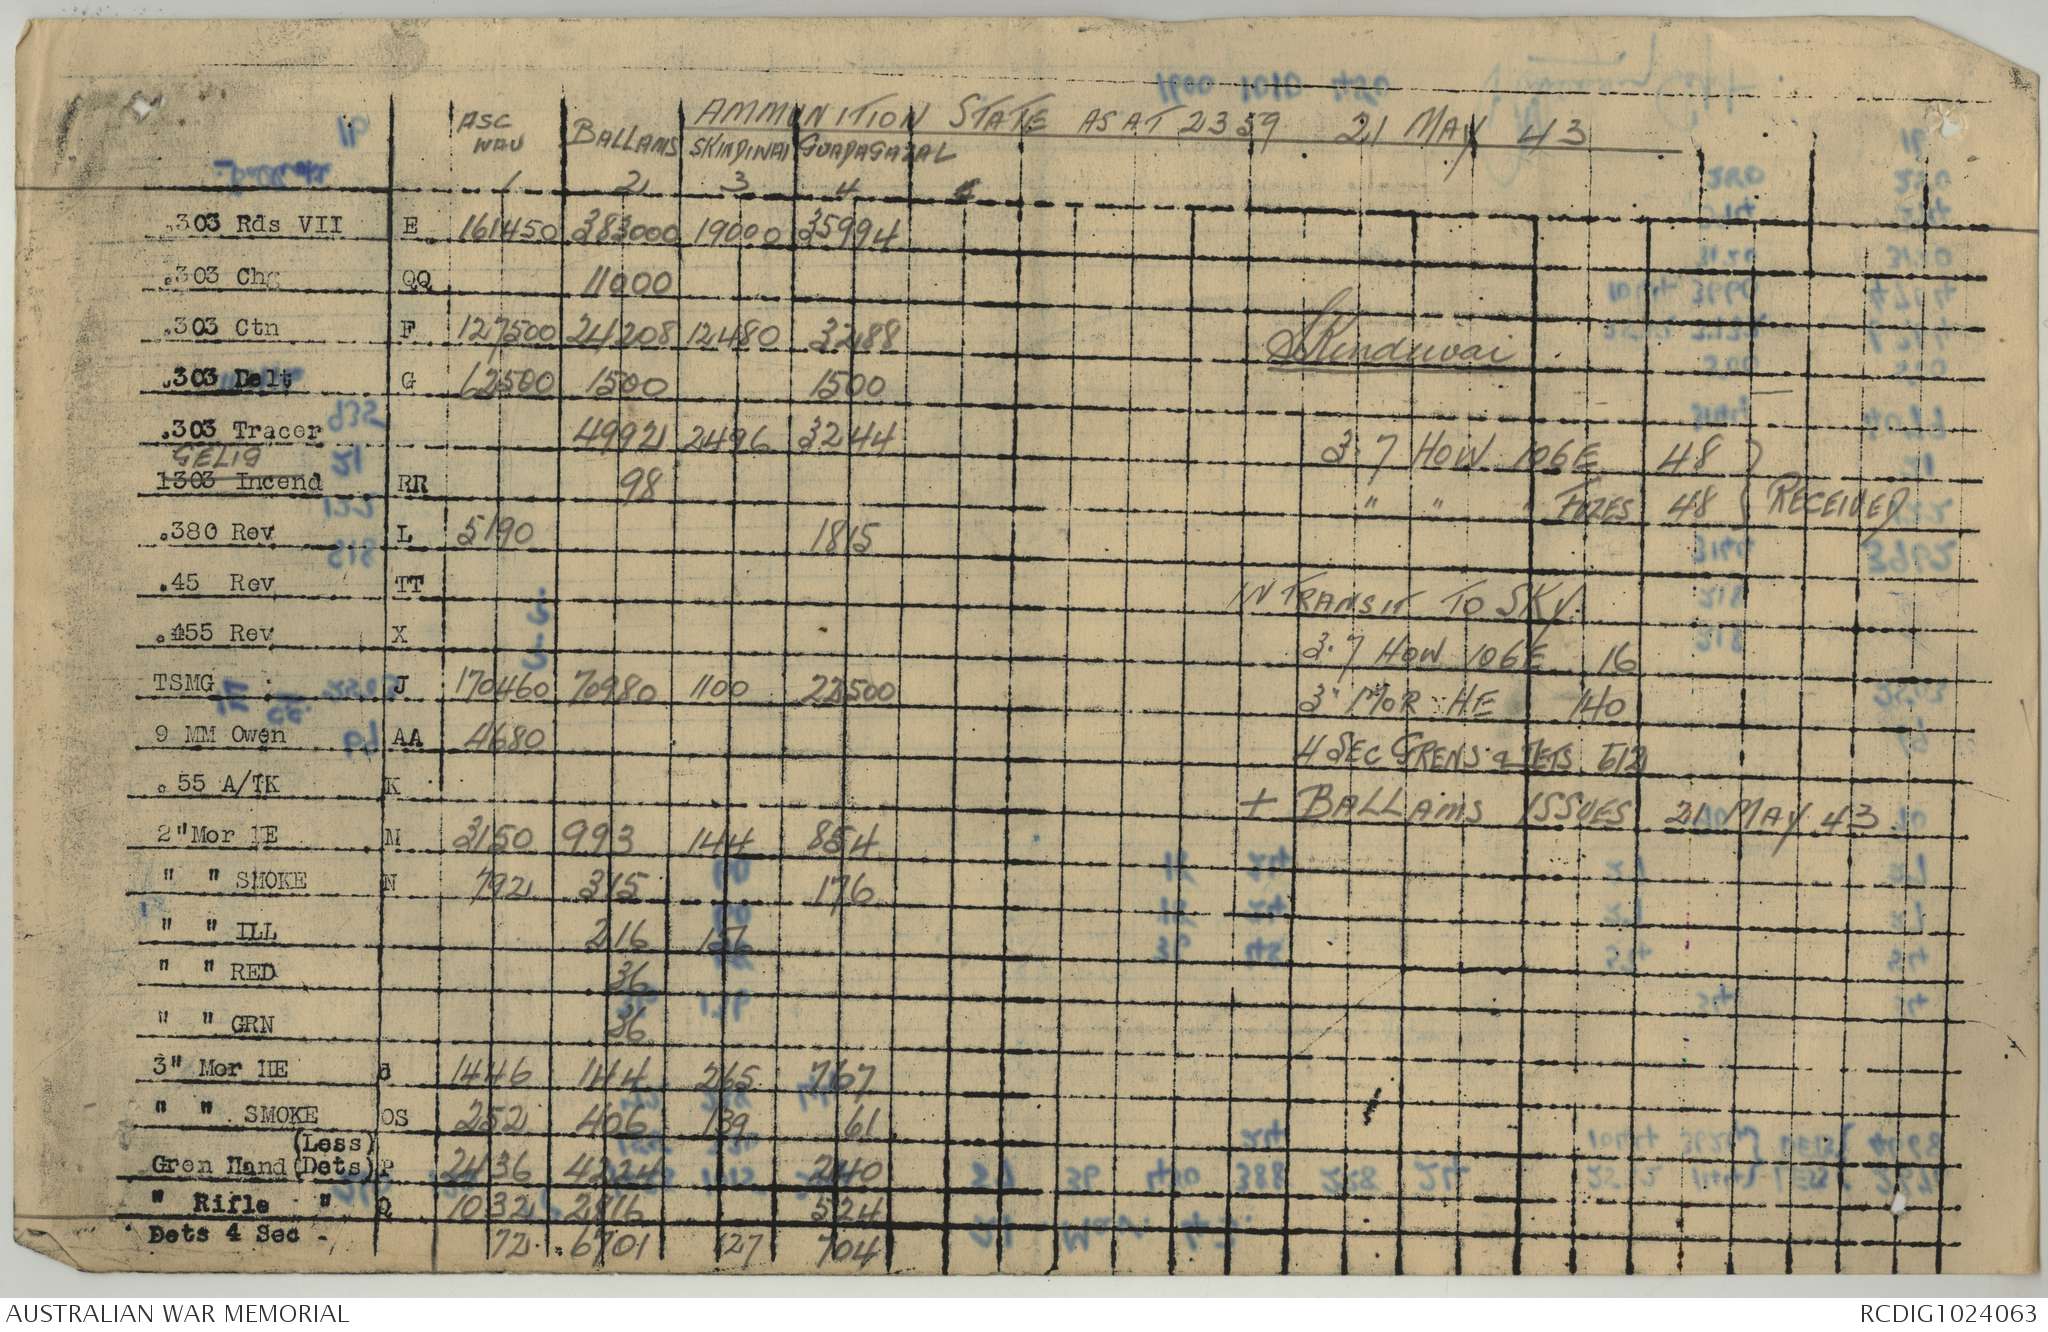 AMMUNITION STATE AS AT 2359 21 MAY 43
ASC WAU BALLAMS SKINDIWAI GUADAGAZAL
1 2 3 4
.303 Rds VII E 161450 383000 19000 35994
.303 Chg QQ 11000
.303 Ctn F 127500 24208 12480 3288
Skinduwai
.303 Belt G 62500 1500 1500
.303 Tracer 49921 2496 3244
3.7 HOW 106E 48
GELIG
.303 Incend RR 98
" " " FUZES 48 RECEIVED
.380 Rev L 5190 1815
.45 Rev TT
IN TRANSIT TO SKY.
.455 Rev X
3.7 HOW 106E 16
TSMG J 170460 70980 1100 22500
3" MOR HE 140
9 MM Owen AA 4680
4 SEC GRENS & DETS 512
.55 A/TK K
+ BALLAMS ISSUES 21 MAY 43
2" Mor HE M 3150 993 144 854
" " SMOKE N 792 315 176
" " ILL 216
" " RED 36
" " GRN 36
3" Mor HE 1446 144 265 767
" " SMOKE OS 252 406 139 61
(Less)
Gren Hand (Dets) P 2436 4224 240
" Rifle " Q 1032 2816 524
Dets 4 Sec - 72 6701 127 704
AUSTRALIAN WAR MEMORIAL
RCDIG1024063